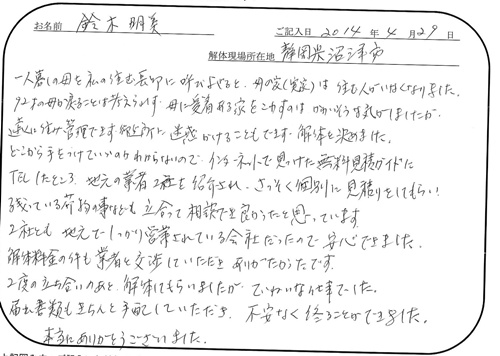 お名前 鈴木明美 ご記入日 2014年4月29日
解体現場所在地 静岡県沼津市
一人暮しの母を私の住む長印に呼びよせると、母の家(実家)は住む人がいなくなりました。
92才の母が戻ることは考えられず、母に愛着ある家をこわすのはかわいそうな気がしましたが、
遠くに住み管理できず御近所に迷惑かけることもできず、解体を決めました。
どこから手をつけていいのかわからないので、インターネットで見つけた無料見積ガイドに
TELしたところ、地元の業者2社を紹介され、さっそく個別に見積りをしてもらい
残っている荷物の事なども立合って相談でき良かったと思っています。
2社とも地元でしっかり営業されている会社だったので安心できました。
解体料金の件も業者と交渉していただき ありがたかったです。
2度の立ち合いのあと、解体してもらいましたが ていねいな仕事でした。
届出書類もきちんと手配していただき、不安なく終ることができました。
本当にありがとうございました。